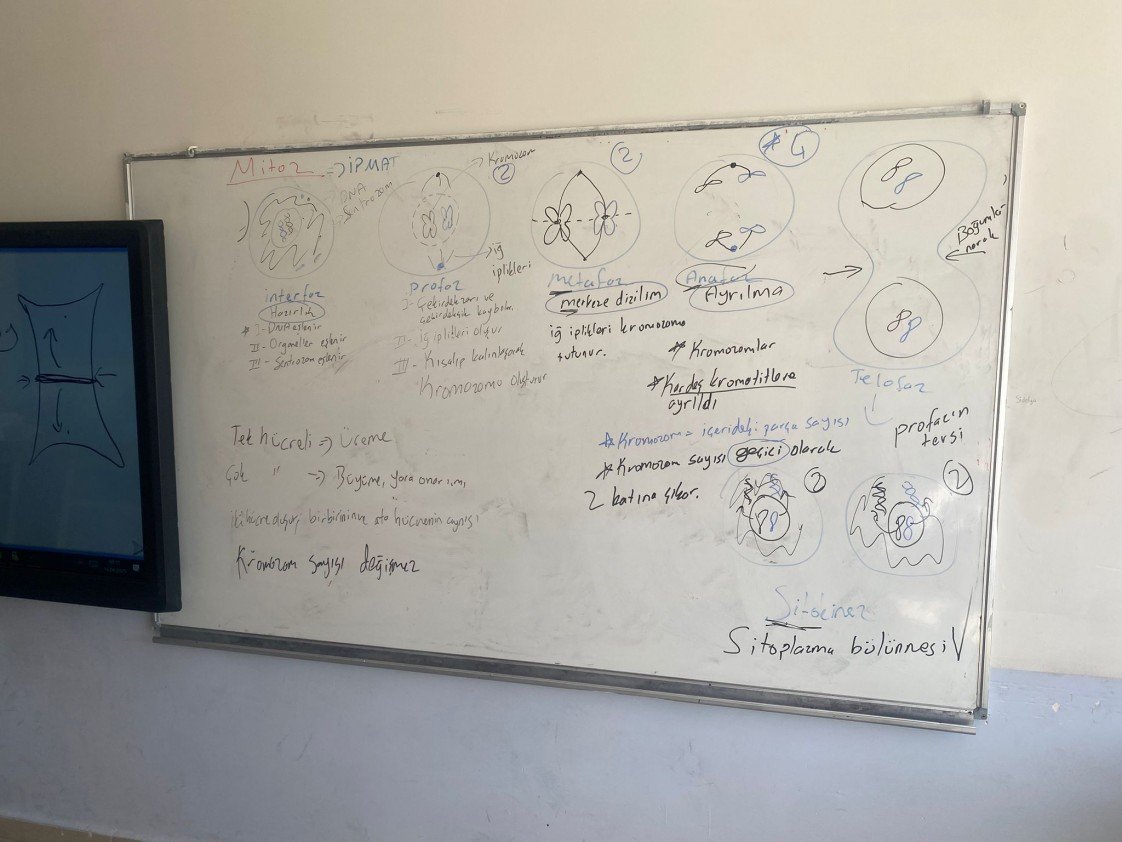 Mitoz → İPMAT
DNA
Sentrozom
interfaz
Hazırlık
* I- DNA eşlenir
II- Organeller eşlenir
III- Sentrozom eşlenir
Kromozom
2
iğ
iplikleri
Profaz
I- Çekirdek zarı ve
çekirdekçik kaybolur.
II- İğ iplikleri oluşur
III- Kısalıp kalınlaşarak
Kromozomu oluşturur
2
Metafaz
merkeze dizilim
iğ iplikleri kromozoma
tutunur.
* 4
Anafaz
Ayrılma
* Kromozomlar
* Kardeş kromatitlere
ayrıldı
* Kromozom = içerideki parça sayısı
* Kromozom sayısı geçici olarak
2 katına çıkar.
Boğumla-
narak
Telofaz
profaz'ın
tersi
2
2
Sitokinez
Sitoplazma bölünmesi
Tek hücreli ⇒ Üreme
Çok " → Büyüme, yara onarımı,
iki hücre oluşur, birbirinin ve ata hücrenin aynısı
Kromozom sayısı değişmez